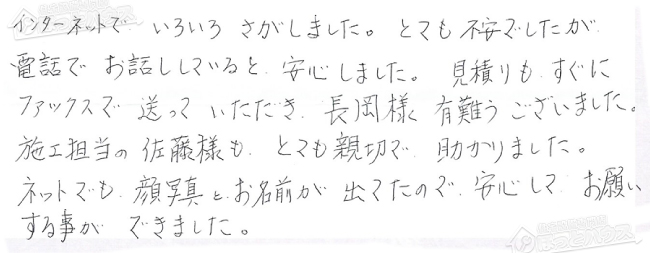 インターネットで いろいろ さがしました。とても 不安でしたが
電話で お話ししていると 安心しました。 見積りも すぐに
ファックスで 送って いただき、長岡様、有難うございました。
施工担当の 佐藤様も とても親切で 助かりました。
ネットでも 顔写真とお名前が 出てたので、安心して お願い
する事が できました。